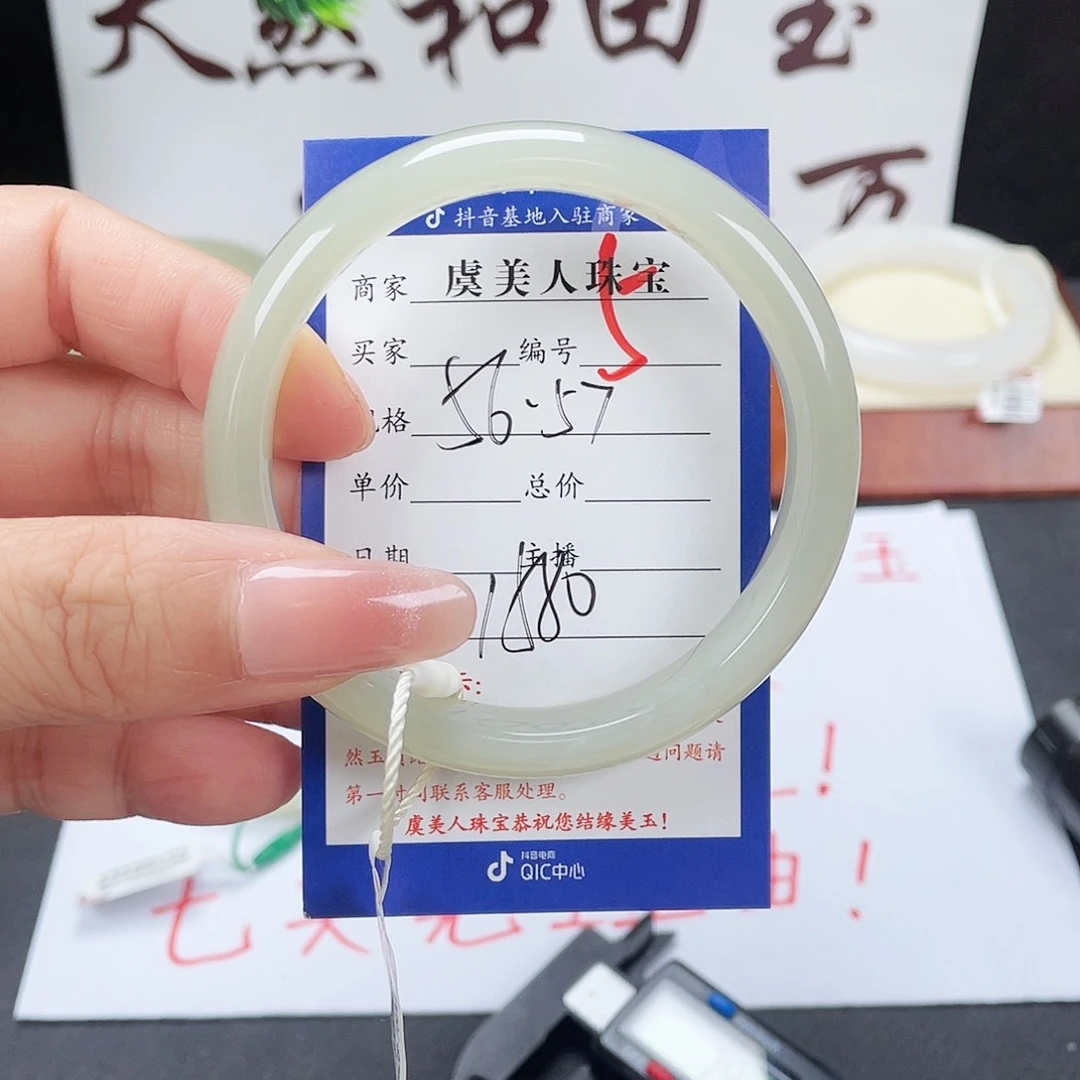 天然和田玉
万
抖音基地入驻商家
商家 虞美人珠宝
5
买家 编号
格 56-57
单价 总价
日期 主播
1880
示:
然玉 问题请
第一时间联系客服处理。
虞美人珠宝恭祝您结缘美玉!
抖音电商
QIC中心
玉
!
七天无理由!